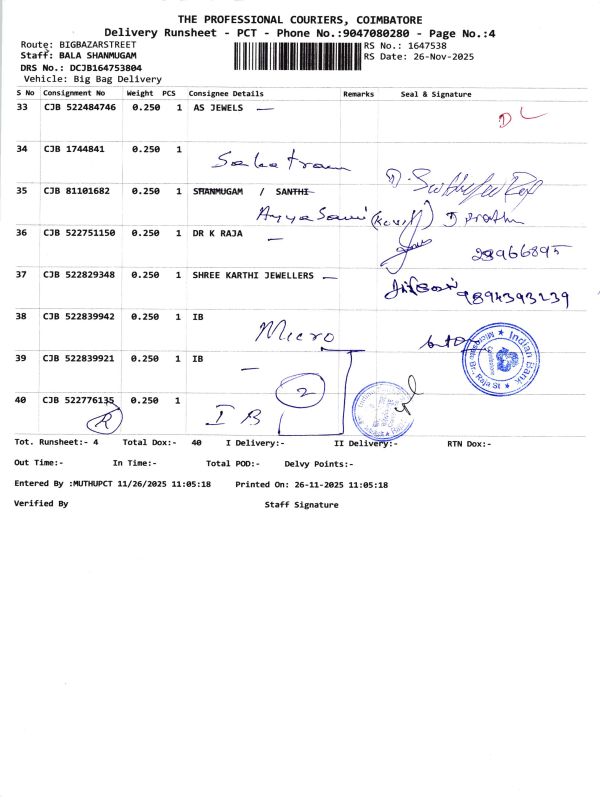 THE PROFESSIONAL COURIERS, COIMBATORE
Delivery Runsheet - PCT - Phone No.:9047080280 - Page No.:4
Route: BIGBAZARSTREET RS No.: 1647538
Staff: BALA SHANMUGAM RS Date: 26-Nov-2025
DRS No.: DCJB164753804
Vehicle: Big Bag Delivery
S No Consignment No Weight PCS Consignee Details Remarks Seal & Signature
33 CJB 522484746 0.250 1 AS JEWELS — DL
34 CJB 1744841 0.250 1
35 CJB 81101682 0.250 1 SHANMUGAM / SANTHI
Ayyasami
36 CJB 522751150 0.250 1 DR K RAJA —
37 CJB 522829348 0.250 1 SHREE KARTHI JEWELLERS —
9894393239
38 CJB 522839942 0.250 1 IB
Micro
Indian Bank
Raja St
39 CJB 522839921 0.250 1 IB —
2
40 CJB 522776135 0.250 1
R IB
Tot. Runsheet:- 4 Total Dox:- 40 I Delivery:- II Delivery:- RTN Dox:-
Out Time:- In Time:- Total POD:- Delvy Points:-
Entered By :MUTHUPCT 11/26/2025 11:05:18 Printed On: 26-11-2025 11:05:18
Verified By Staff Signature